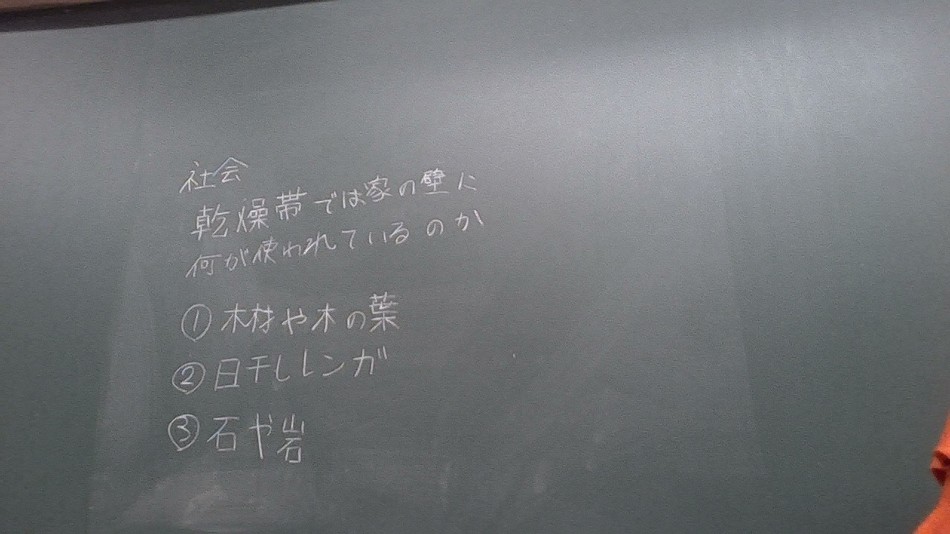 社会
乾燥帯では家の壁に
何が使われているのか
①木材や木の葉
②日干しレンガ
③石や岩